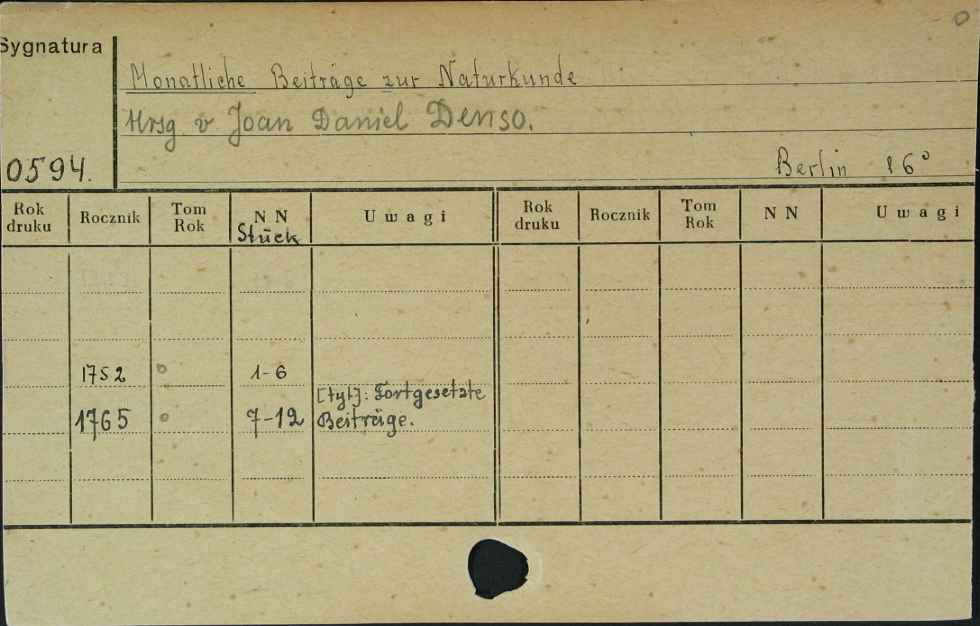 Sygnatura
Monatliche Beiträge zur Naturkunde
Hrsg v Joan Daniel Denso.
0594.
Berlin 16°
Rok druku Rocznik Tom Rok N N Stück Uwagi Rok druku Rocznik Tom Rok N N Uwagi
1752 1-6
1765 7-12 [tyt]: Fortgesetzte
Beiträge.